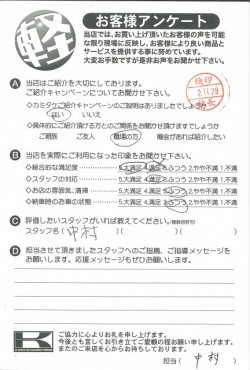 軽
お客様アンケート
当店では、お買い上げ頂いたお客様の声を可能
な限り現場に反映し、お客様により良い商品と
サービスを提供する事に努めています。
大変お手数ですが是非お声をお聞かせ下さい。
検印
2.11.28
A 当店はご紹介を大切にしております。
ご紹介キャンペーンについてお聞かせ下さい。
◇カミタクご紹介キャンペーンのご説明はありましたでしょうか
はい いいえ
◇具体的にご紹介頂ける方とのご関係をお聞かせ頂けますでしょうか
ご親族 ご友人 職場の方 機会があれば紹介したい
B 当店を実際にご利用になった印象をお聞かせ下さい。
◇総合的な満足度 5.大満足 4.満足 3.ふつう 2.やや不満 1.不満
◇スタッフの対応 5.大満足 4.満足 3.ふつう 2.やや不満 1.不満
◇お店の雰囲気、清掃 5.大満足 4.満足 3.ふつう 2.やや不満 1.不満
◇納車時のお車の状態 5.大満足 4.満足 3.ふつう 2.やや不満 1.不満
C 評価したいスタッフがいれば教えてください。(複数回答可)
スタッフ名( 中村 )
D 担当させて頂きましたスタッフへのご指摘、ご指導メッセージを
お願いします。応援メッセージもぜひお願いします。
K
ご協力に心よりお礼を申し上げます。
今後とも宜しくお引き立てご愛顧の程お願い申し上げます。
またのご来店を心からお待ちしております。
担当( 中村 )